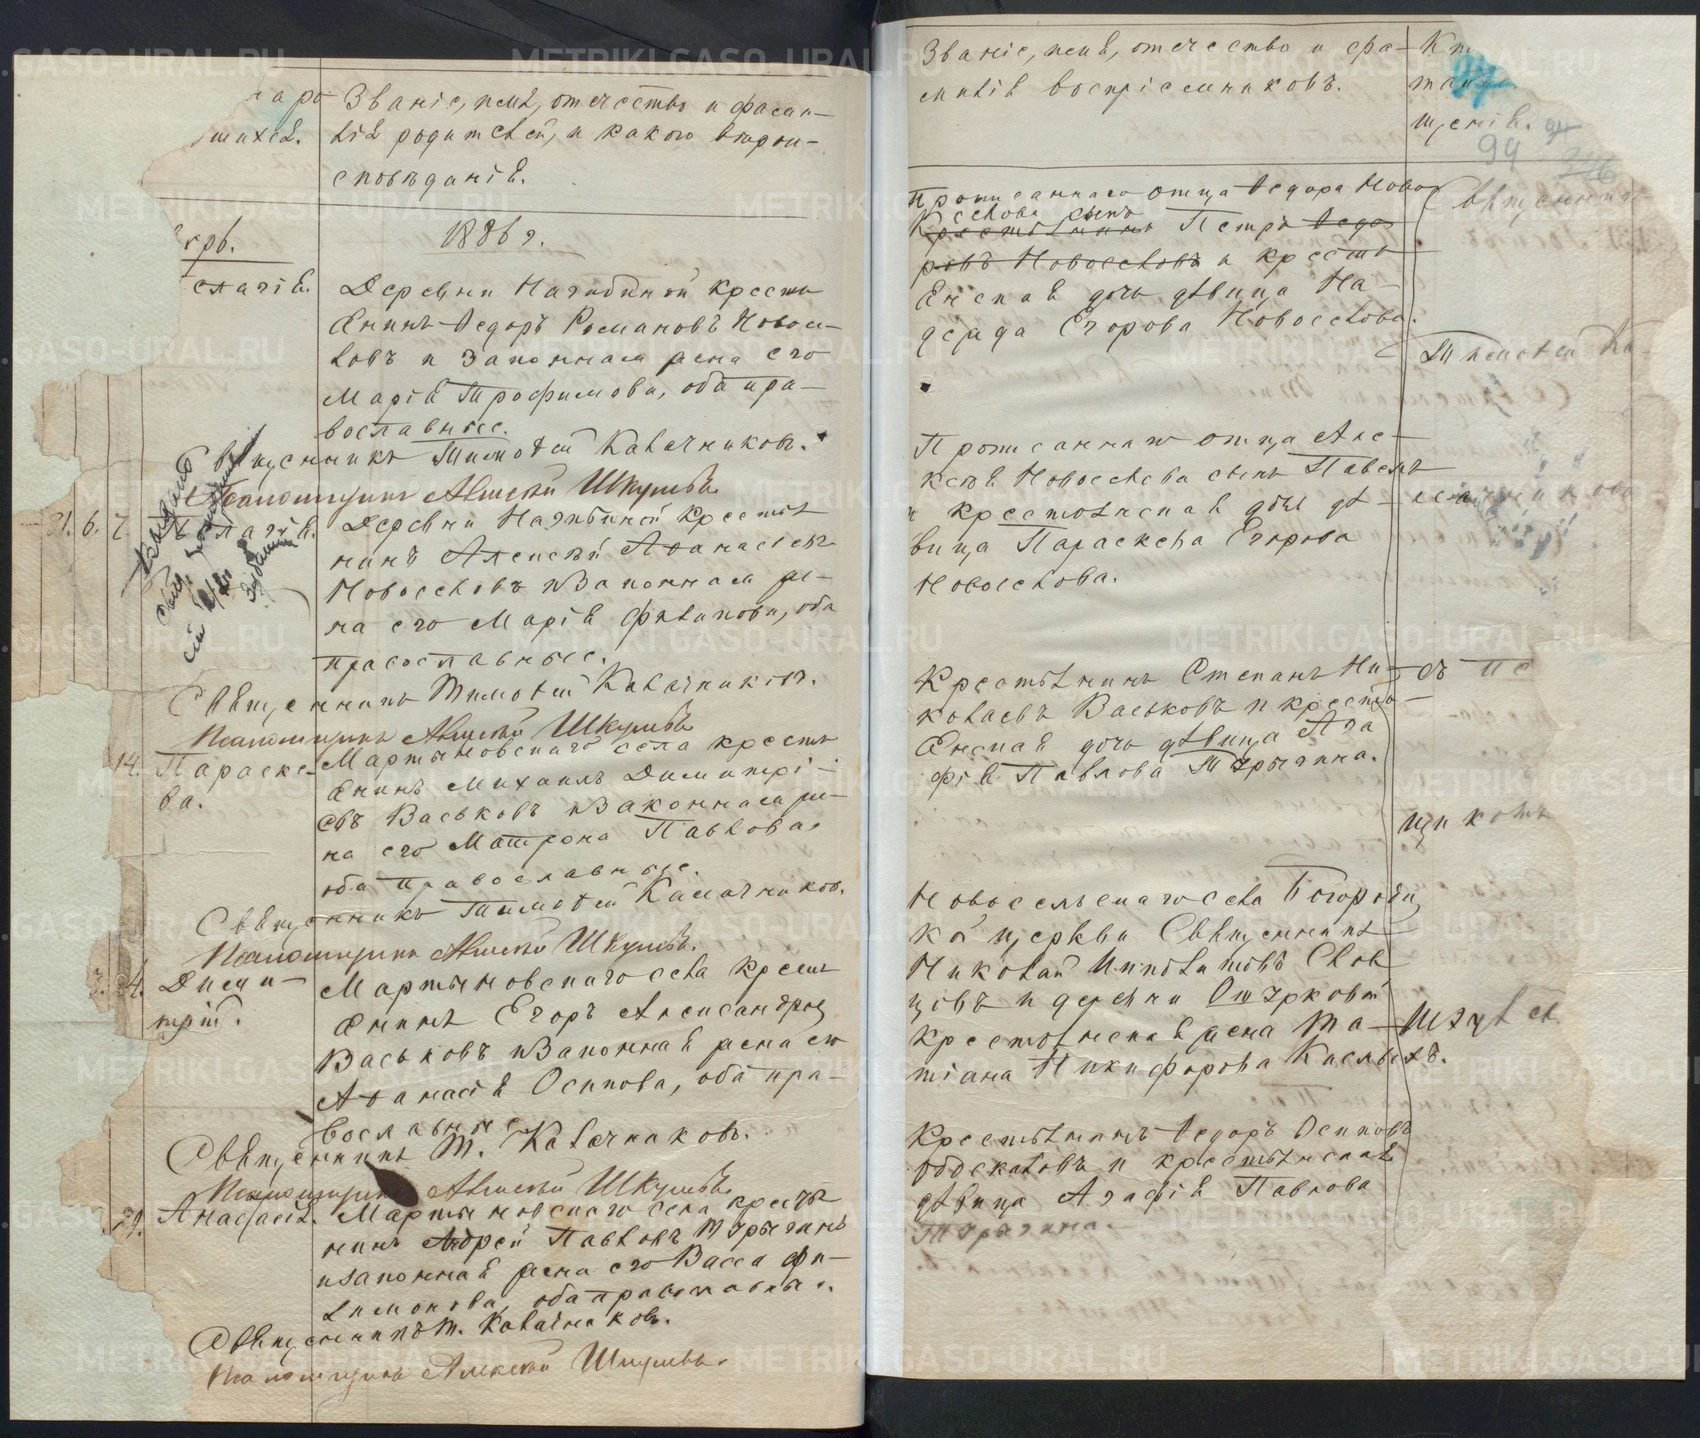 Званіе, имя, отчество и фами-
лія родителей, и какого вѣрои-
сповѣданія.
1886 г.
Деревни Нагибиной кресть
янинъ Ѳедоръ Романовъ Новосе-
ловъ и законная жена его
Марія Трофимова, оба пра-
вославные.
Священникъ Тимоѳей Калачниковъ.
Псаломщикъ Алексѣй Шкулевъ
31. 6. 7. Пелагія.
Деревни Нагибиной крестья
нинъ Алексѣй Аѳанасьевъ
Новоселовъ и законная же-
на его Марія Филипова, оба
православные.
Священникъ Тимоѳей Калачниковъ.
Псаломщикъ Алексѣй Шкулевъ
14. Параске-
ва.
Мартыновскаго села кресть
янинъ Михаилъ Димитрі-
евъ Васьковъ и законная же-
на его Матрона Павлова,
оба православные.
Священникъ Тимоѳей Калачников.
Псаломщикъ Алексѣй Шкулевъ.
Дими-
трій.
Мартыновскаго села кресть
янинъ Егоръ Александров
Васьковъ и законная жена его
Аѳанасія Осипова, оба пра-
вославные.
Священникъ Т. Калачниковъ.
Псаломщикъ Алексѣй Шкулевъ
29. Анастасія.
Мартыновскаго села крестья
нинъ Андрей Павловъ Тэрыгинъ
и законная жена его Васса Фи-
лимонова, оба православные.
Священникъ Т. Калачниковъ.
Псаломщикъ Алексѣй Шкулевъ
Званіе, имя, отчество и фа-
милія воспріемниковъ.
щенія.
94
Прописаннаго отца Ѳедора Ново
селова сынъ
Крестьянинъ Петръ Ѳедо
ровъ Новоселовъ и кресть
янская дочь дѣвица На-
дежда Егорова Новоселова.
Священник
Тимоѳей Ка-
Прописаннаго отца Але-
ксѣя Новоселова сынъ Павелъ
и крестьянская дочь дѣ-
вица Параскева Егорова
Новоселова.
Крестьянинъ Степанъ Ни-
колаевъ Васьковъ и кресть-
янская дочь дѣвица Ага
фія Павлова Тэрыгина.
щикомъ
Новосельскаго села Богородиц
кой церкви Священникъ
Николай Ипполитовъ Слов
цовъ и деревни
крестьянская жена Та-
тіана Никифорова Кислыхъ.
Крестьянинъ Ѳедоръ Осиповъ
и крестьянская
дѣвица Агафія Павлова
Тэрыгина.
METRIKI.GASO-URAL.RU